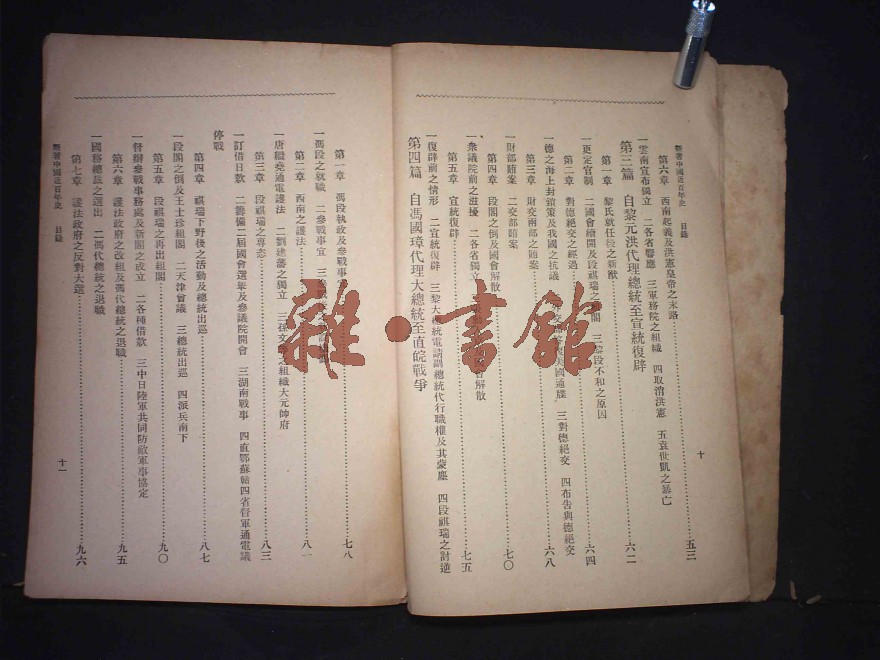 新著中國近百年史 目錄
第六章 西南起義及洪憲皇帝之末路……五三
一雲南宣布獨立 二各省響應 三軍務院之組織 四取消洪憲 五袁世凱之暴亡
第三篇 自黎元洪代理總統至宣統復辟
第一章 黎氏就任後之新猷……六二
一更定官制 二國會續開及段祺瑞之 閣 三 段不和之原因
第二章 對德絕交之經過……六四
一德之海上封鎖策及我國之抗議 國通牒 三對德絕交 四布告與德絕交
第三章 財交兩部之賄案……六八
一財部賄案 二交部賄案
第四章 段閣之倒及國會解散……七〇
一衆議院前之滋擾 二各省獨立 解散
第五章 宣統復辟……七五
一復辟前之情形 二宣統復辟 三黎大總統電請副總統代行職權及其蒙塵 四段祺瑞之討逆
第四篇 自馮國璋代理大總統至直皖戰爭
十
第一章 馮段執政及參戰事……七八
一馮段之就職 二參戰事宜
第二章 西南之護法……八一
一唐繼堯通電護法 二劉建藩之獨立 三孫文 之組織大元帥府
第三章 段祺瑞之專恣……八三
一訂借日款 二籌備二屆國會選舉及參議院開會 三湖南戰事 四直鄂蘇贛四省督軍通電議
停戰
第四章 祺瑞下野後之活動及總統出巡……八七
一段閣之倒及王士珍組閣 二天津會議 三總統出巡 四派兵南下
第五章 段祺瑞之再出組閣……九〇
一督辦參戰事務處及新閣之成立 二各種借款 三中日陸軍共同防敵軍事協定
第六章 護法政府之改組及馮代總統之退職……九五
一國務總裁之選出 二馮代總統之退職
第七章 護法政府之反對大選……九六
新著中國近百年史 目錄
十一
雜·書館